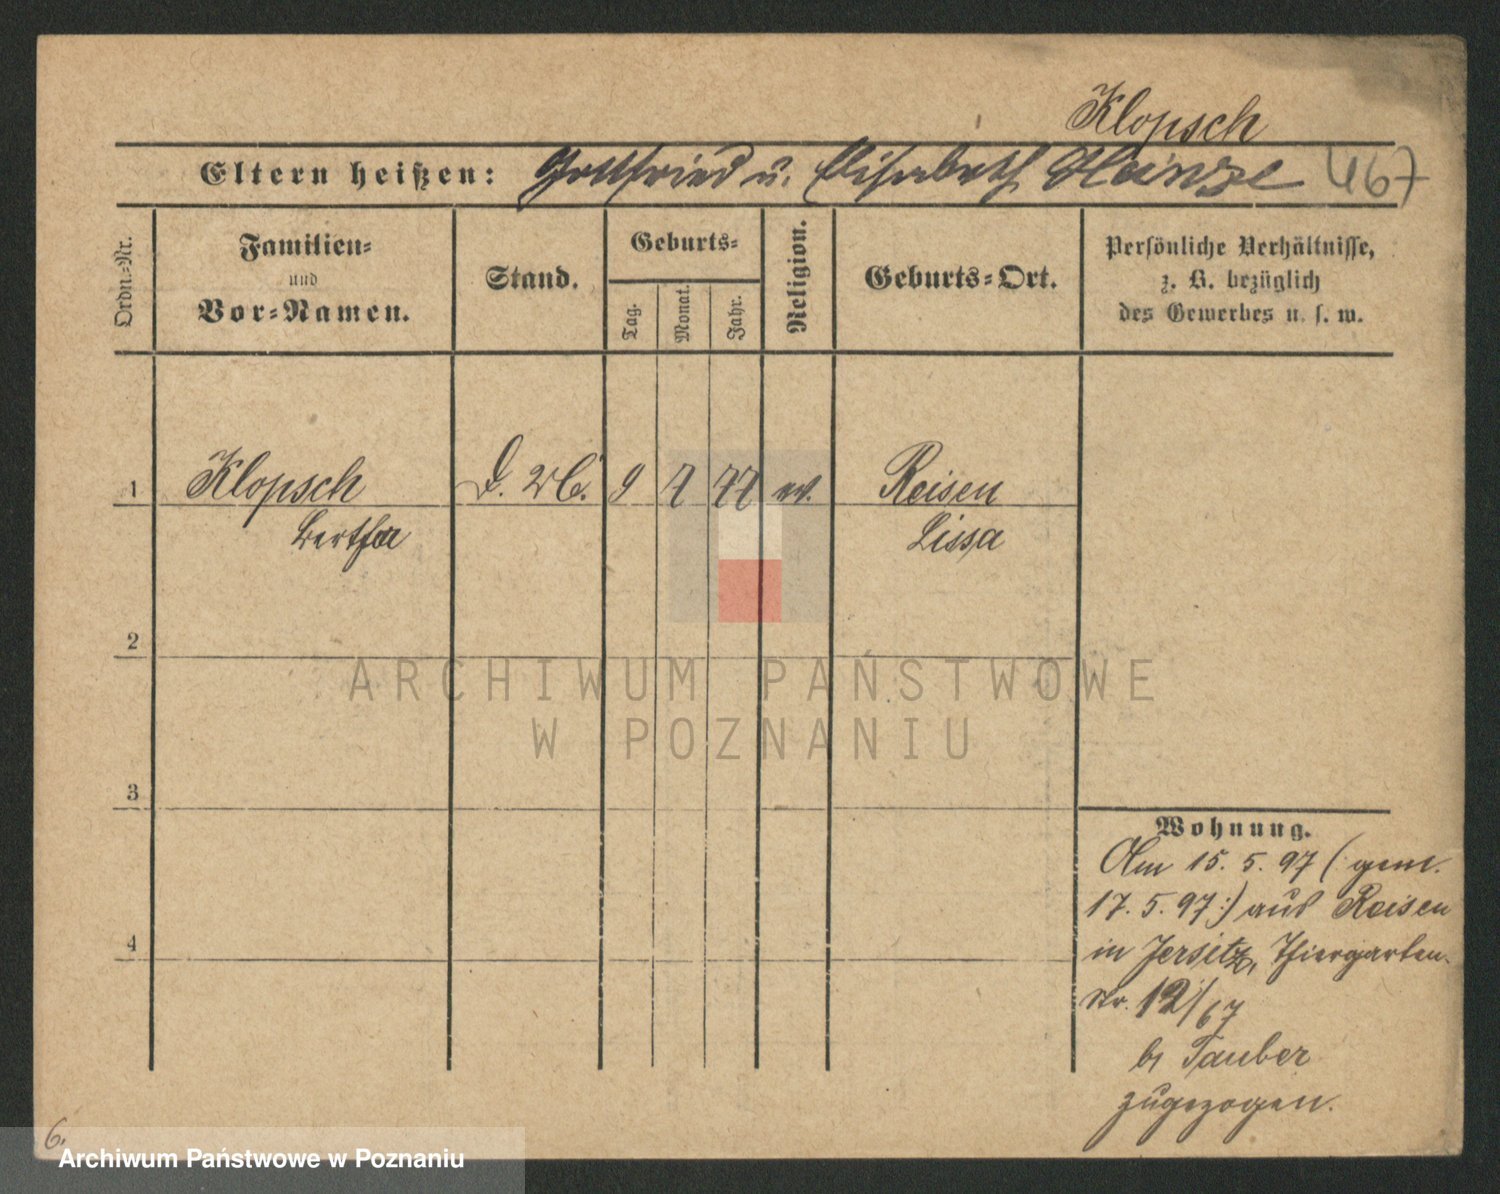 Klopsch
Eltern heißen: Gottfried u. Elisabeth Heinze 467
Ordn.-Nr.
Familien-
und
Vor-Namen.
Stand.
Geburts-
Tag.
Monat.
Jahr.
Religion.
Geburts-Ort.
Persönliche Verhältnisse,
z. B. bezüglich
des Gewerbes u. s. w.
1 Klopsch 9 77 ev. Reisen
Bertha Lissa
2
3
4
Wohnung.
Am 15. 5. 97 (gem.
17. 5. 97:) aus Reisen
in Jersitz, Thiergarten-
str. 12/67
b/ Tauber
zugezogen.
6.
ARCHIWUM PAŃSTWOWE
W POZNANIU
Archiwum Państwowe w Poznaniu